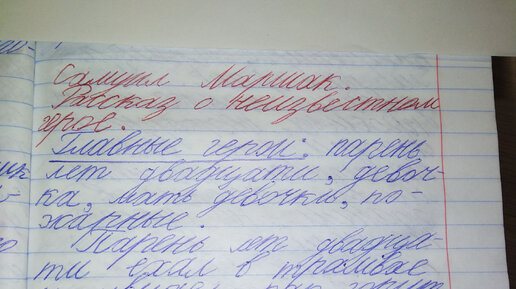 Самуил Маршак.
Рассказ о неизвестном
герое.
Главные герои: парень
лет двадцати, девоч-
ка, мать девочки, по-
жарные.
Парень лет двадца-
ти ехал в трамвае